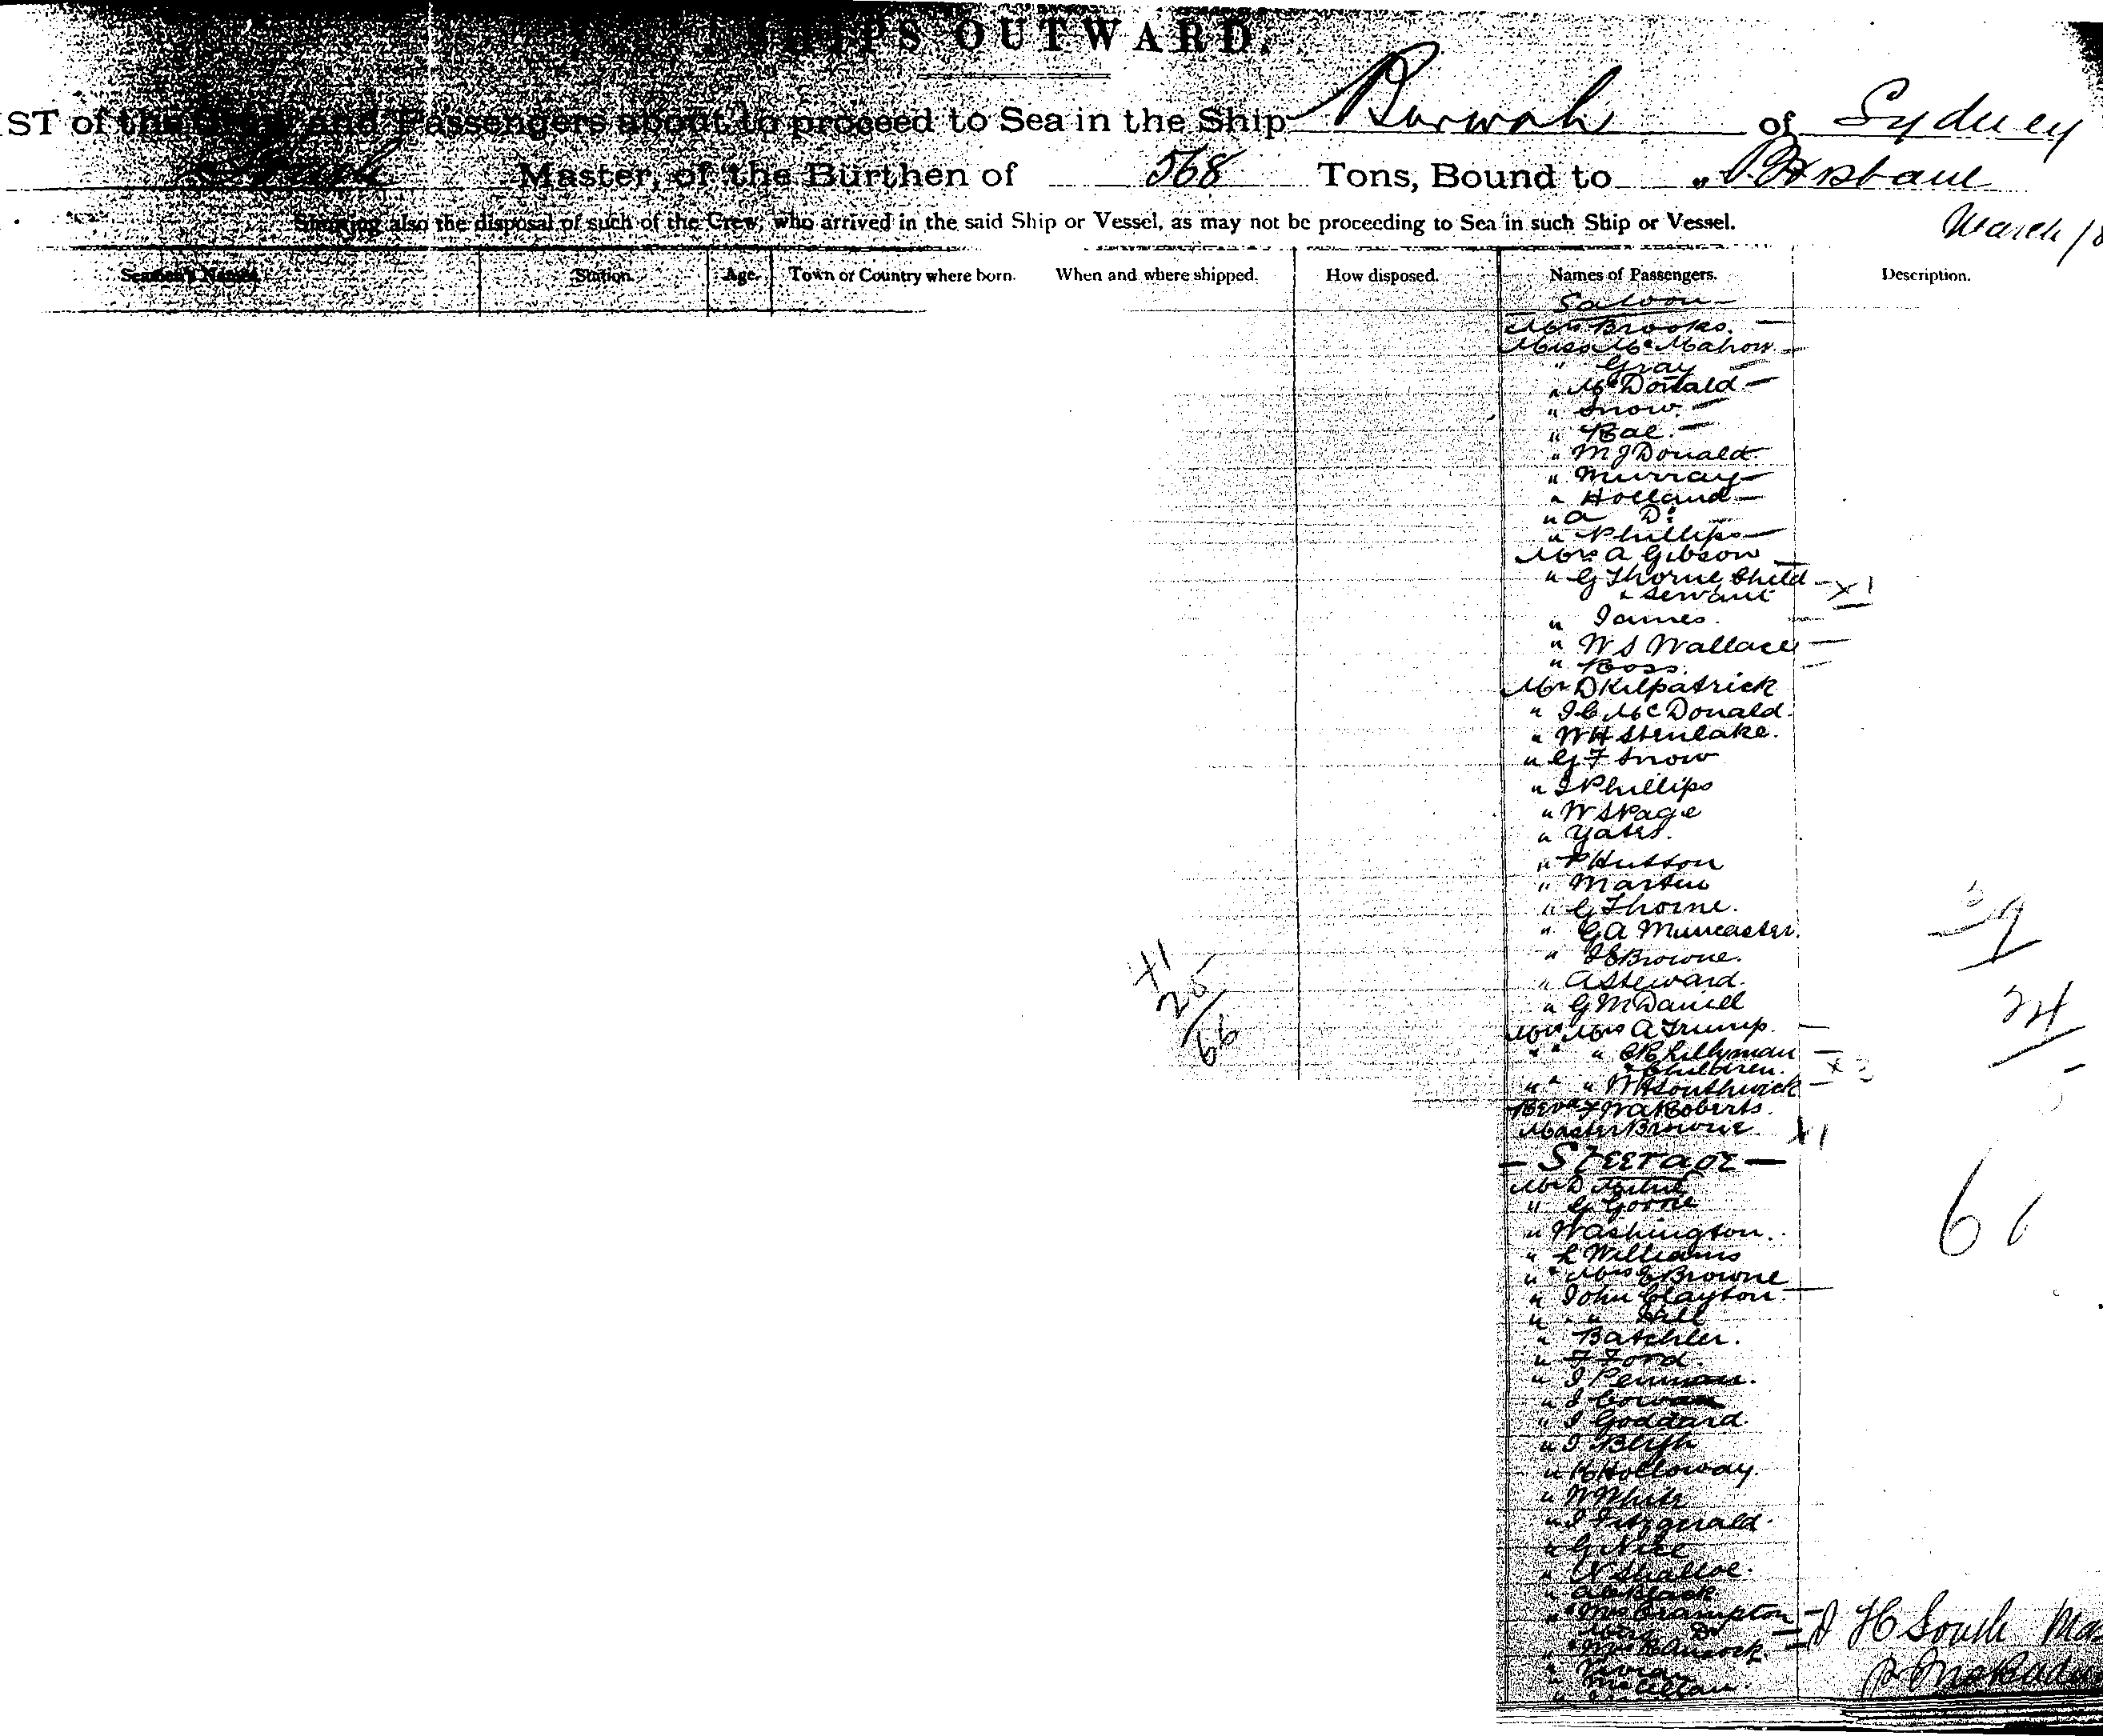 SHIPS OUTWARD.
IST of the Crew and Passengers about to proceed to Sea in the Ship Burwah of Sydney
South Master, of the Burthen of 568 Tons, Bound to Brisbane
Showing also the disposal of such of the Crew, who arrived in the said Ship or Vessel, as may not be proceeding to Sea in such Ship or Vessel.
March 18
Seamen's Names. Station. Age. Town or Country where born. When and where shipped. How disposed. Names of Passengers. Description.
Saloon
Mrs Brooks.
Miss McMahon
" Gray
" McDonald
" Snow.
" Rae.
" M J Donald
" Murray
" Holland
" A Do
" Phillips
Mrs A Gibson
" G Thorne Child x1
& Servant
" James.
" W S Wallace
" Ross.
Mr D Kilpatrick
" J C McDonald.
" W H Stenlake.
" G F Snow
" J Phillips
" W S Page
" Yates.
" P Hutson
" Martin
" G Thorne.
" G A Muncaster.
" J E Browne.
" A Steward.
" G McDaniell
Mr & Mrs A Trump.
" " " C R Lillyman
& Children. x3
" " " W H Southwick
Revd F W A Roberts.
Master Browne x1
39
24
41
25
66
— STEERAGE —
Mr D Milne
" G Goode
" Washington.
" L Williams
" & Mrs E Browne
" John Clayton
" " " Hill
" Batchler.
" F Ford
" J Penman.
" J Cowan
" J Goddard.
" J Blyth
" R Holloway.
" W White
" J Fitzgerald.
" G Nice
" N Shalloe.
" Black
" Mrs Crampton
Miss Do
" Mrs
" Vivian
" McLellan.
J H South Mas